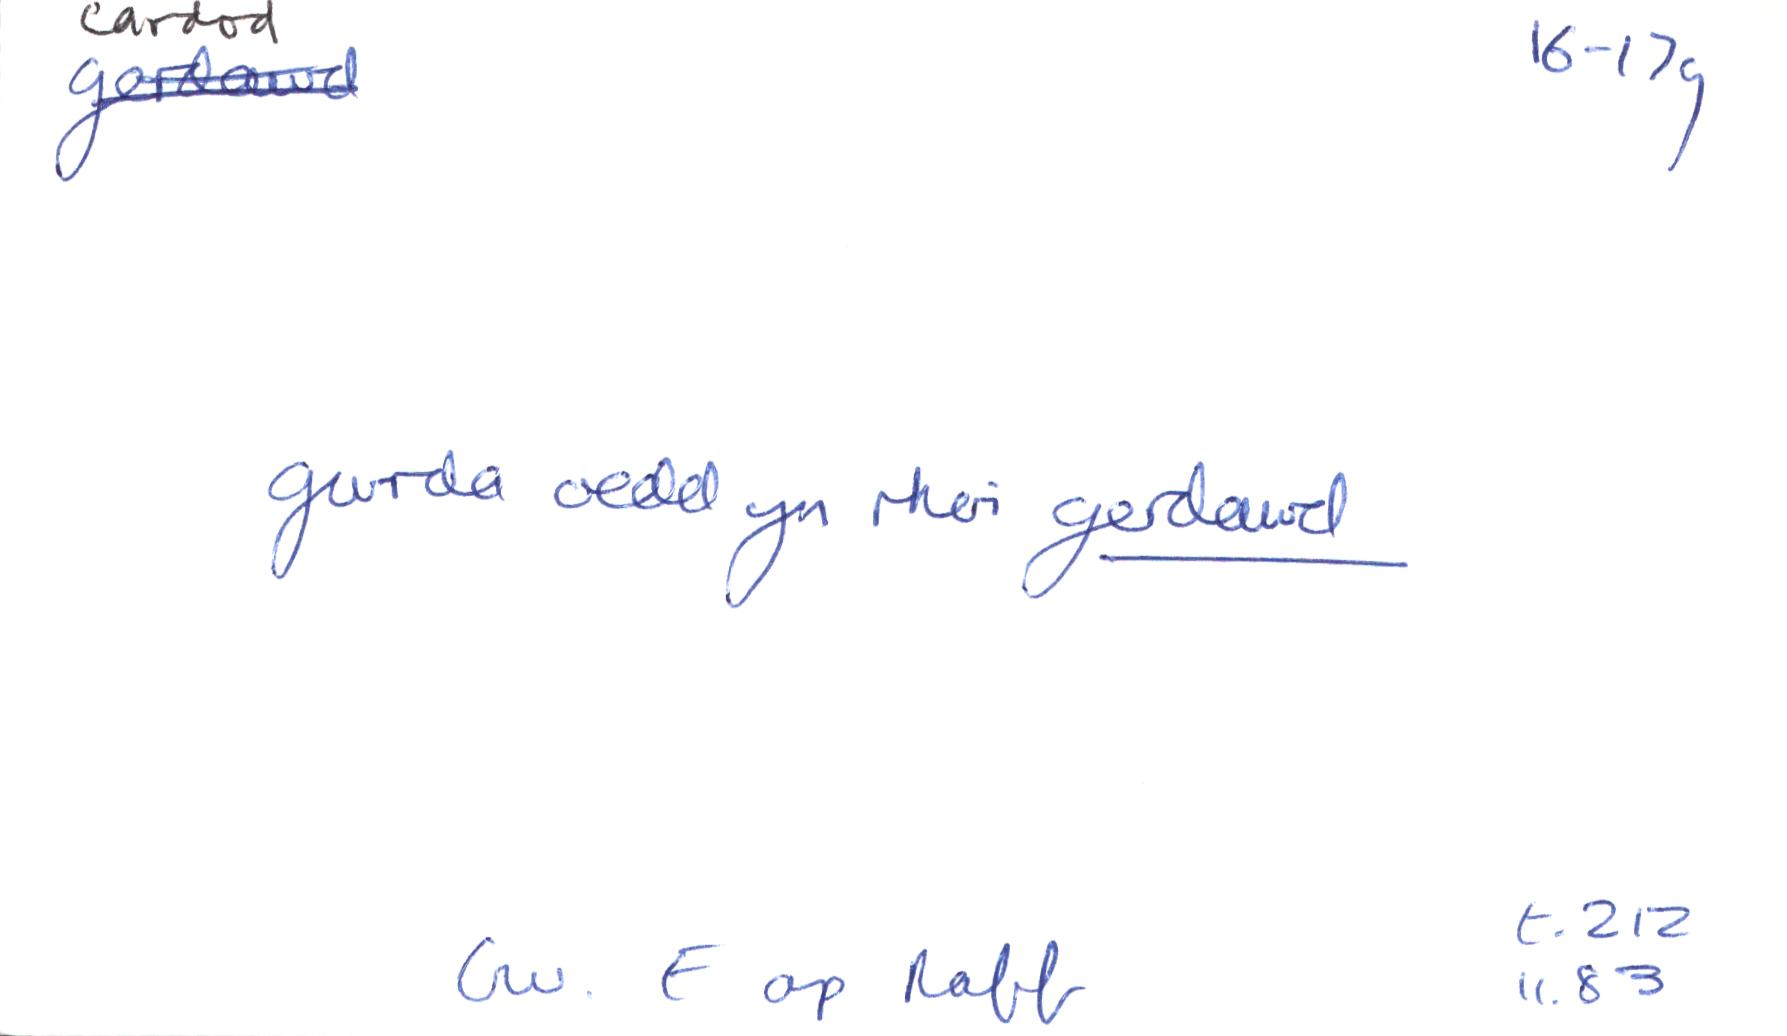 cardod
gerdawd 16-17g
gwrda oedd yn rhoi gerdawd
Gw. E ap Raff t. 212
ll. 83